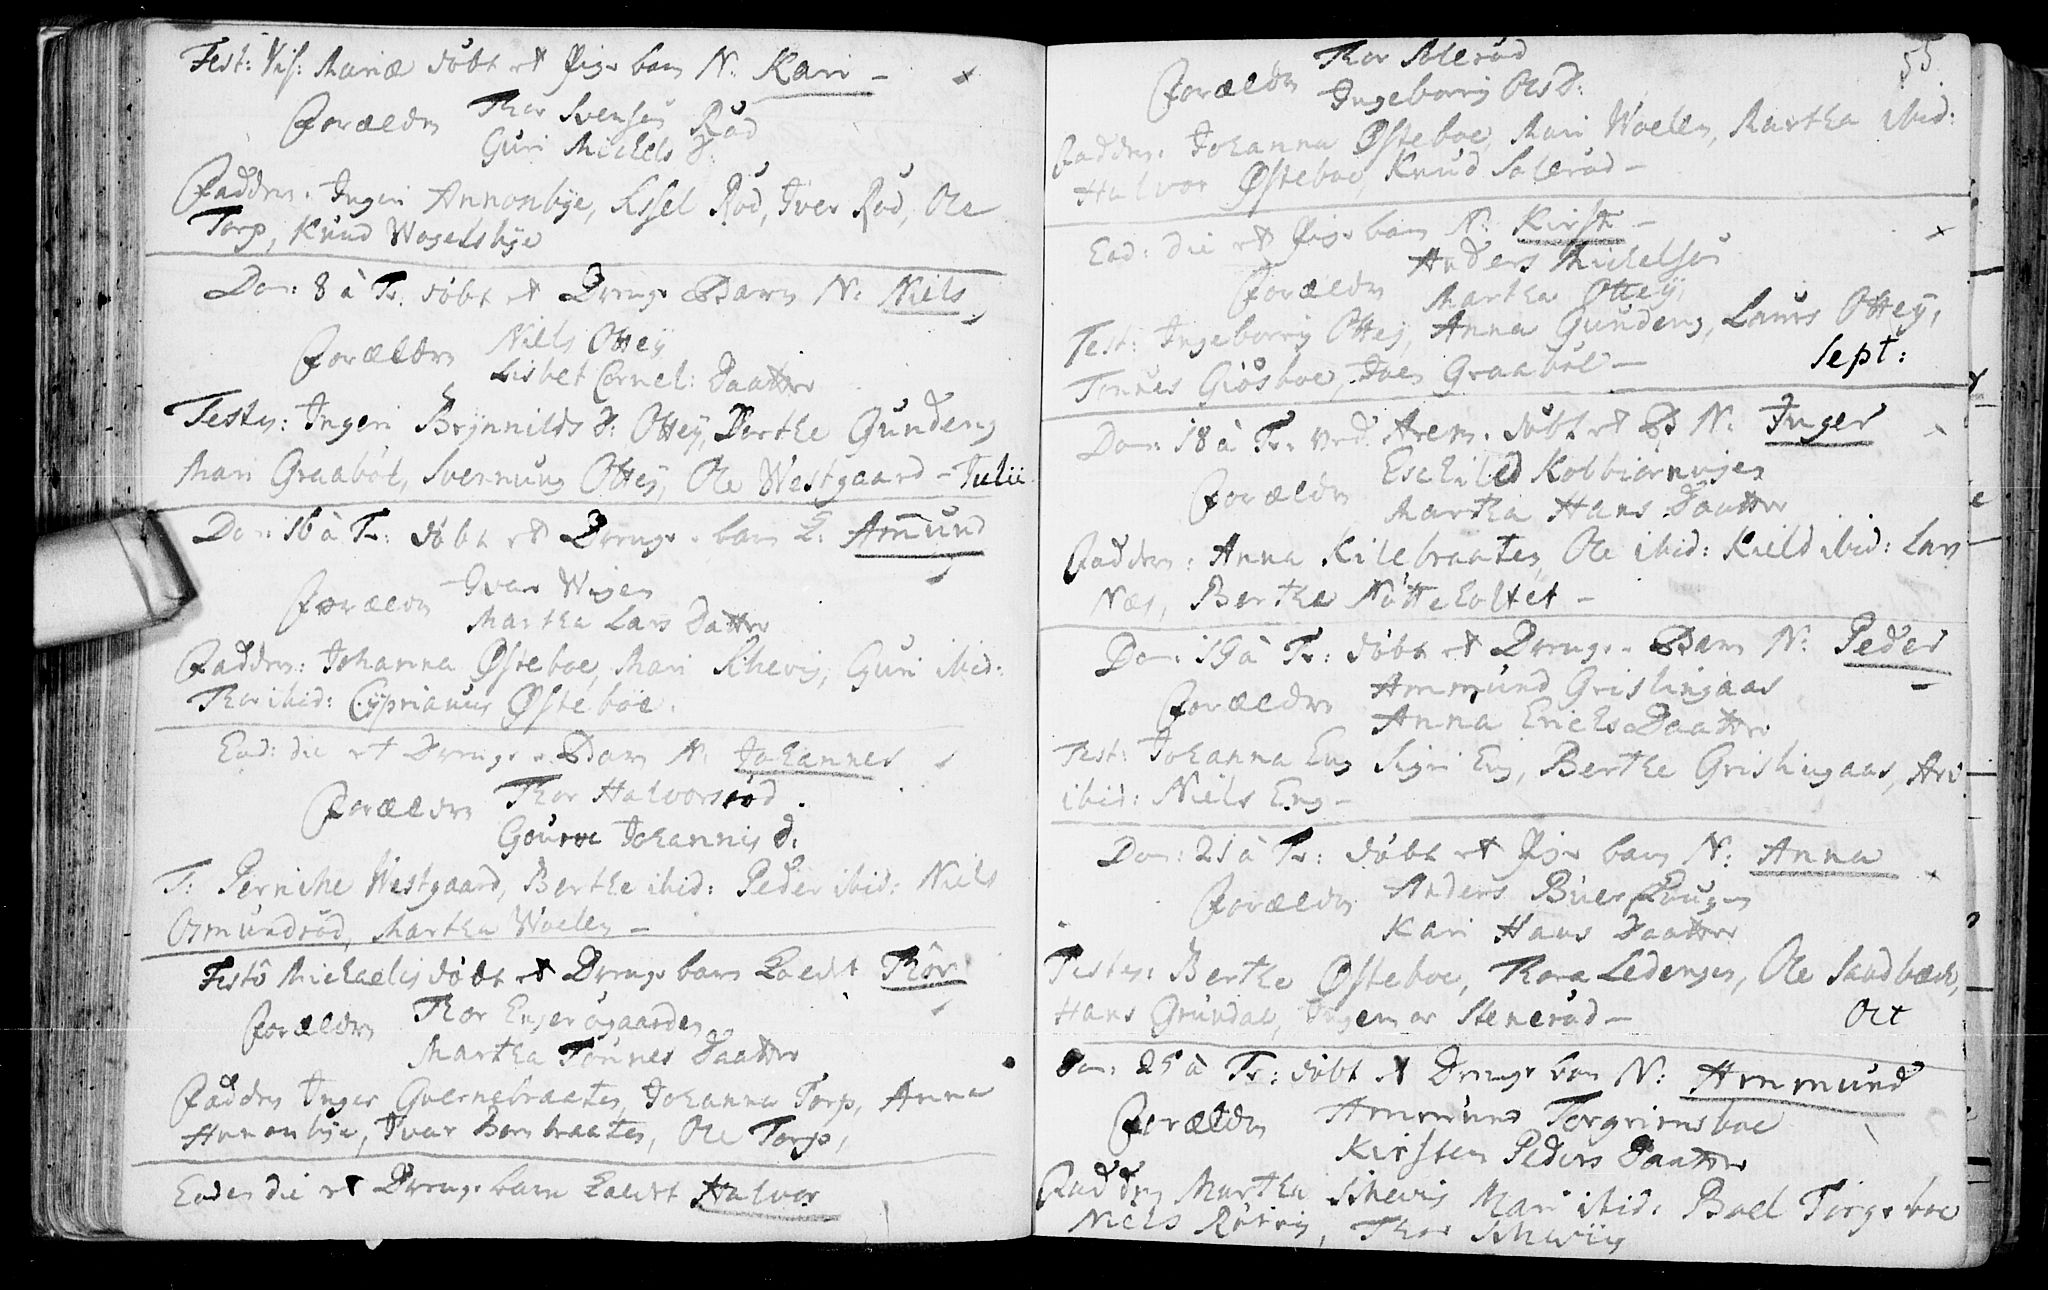 Fest: Vis: Mariæ döbt et Pige barn N. Kari –
Forældre Thor Svensen Rød
Guri Michels D:
Faddere. Ingeri Annonbye, Sissel Rød, Iver Rød, Ole
Torp, Knud Wogelsbye
Dom: 8 à Tr. döbt et Drenge Barn N: Niels
Forældre Niels Ottey
Lisbet Cornel: Daatter
Testes: Ingeri Brynnilds D: Ottey, Dorthe Gundeng
Mari Graaböl, Svennung Ottey, Ole Westgaard – Julii
Dom: 16 à Tr: döbt et Drenge barn Amund
Forældre Ivar Wigen
Martha Lars Datter
Faddere: Johanna Østeboe, Mari Skhevig, Guri ibid:
Thor ibid: Cyprianus Østeböe.
Eod: die et Drenge Barn N. Johannes
Forældre Thor Halvorsröd
Johannis d:
T: Pernike Westgaard, Berthe ibid: Peder ibid: Niels
Osmundröd, Martha Woelen –
Festô Michaelis döbt et Drenge barn Kaldet Thor
Forældre Thor Engeraagaarden
Martha Tönnes Daatter
Faddere Inger Qvernebraaten, Johanna Torp, Anna
Hunonbye, Ivar Bernbraaten, Ole Torp,
Eodem die et Drenge barn Kaldet Halvor
55.
Thor Solerød
Forældre Ingeborrig Ols D:
Faddere. Johanna Østeboe, Mari Woelen, Martha ibid:
Halvor Østeboe, Knud Solerød –
Eod: die et Pige barn N: Kirst –
Anders Michelsen
Forældre Martha Ottey,
Test: Ingeborrig Ottey, Anna Gundeng, Laurs Ottey,
Tönnes Giösboe, Joen Graaböl – Sept:
Dom: 18 à Tr: ved Arem. döbt et B N: Inger
Forældre Eschild Kolbiörnviigen
Martha Hans Daatter
Faddere: Anna Kilebraaten, Ole ibid: Kield ibid: Lars
Næs, Berthe Nötteholtet –
Dom: 19 à Tr: döbt et Drenge Barn N: Peder
Forældre Ammund Grislingaas
Anna Erichs Daatter
Test: Johanna Eng Sigri Eng, Berthe Grislingaas, Are
ibid: Niels Eng –
Dom: 21 à Tr: döbt et Pige barn N: Anna
Forældre Anders Büer
Kari Hans Daatter
Testes: Berthe Østeboe, Thora Ledengen, Ole Sandbæck,
Hans Grundal, Stenerød – Oct
Dom: 25 à Tr: döbt et Drenge barn N: Ammund
Forældre Ammund Torgrimsboe
Kirsten Peders Daatter
Faddere Martha Skhevig Mari ibid: Boel Torgsboe
Niels Rörvig, Thor Skheviig